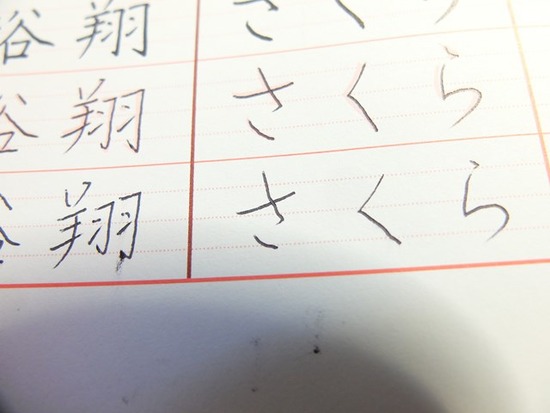 裕翔 さくら
裕翔 さくら
裕翔 さくら